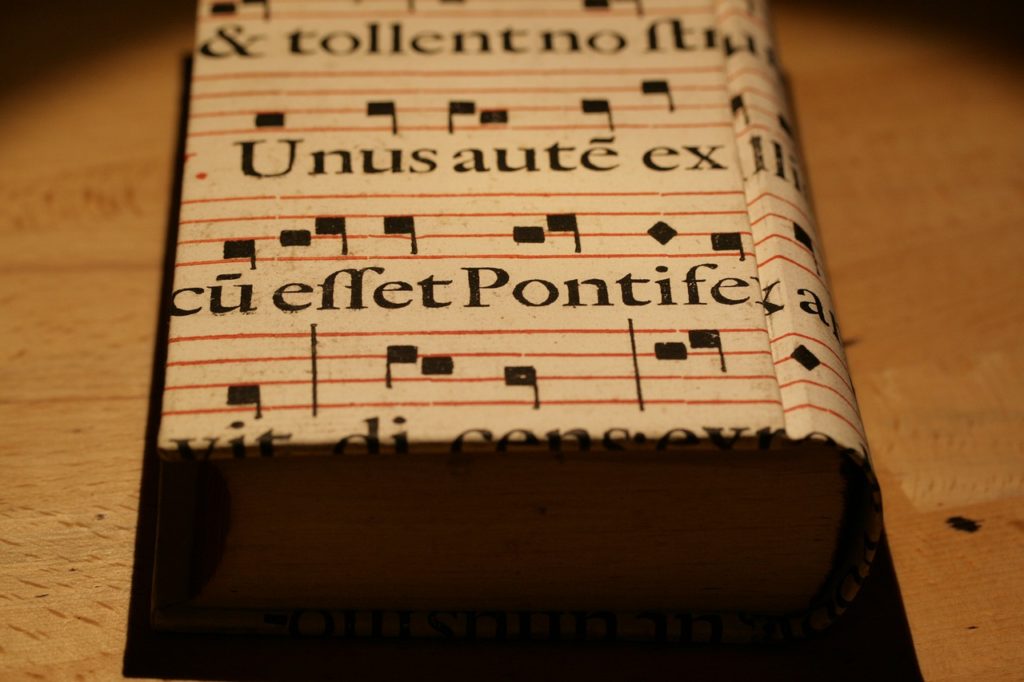 & tollent no ſtr
Unus autē ex illi
cū eſſet Pontifex a
vit, di cens: expe